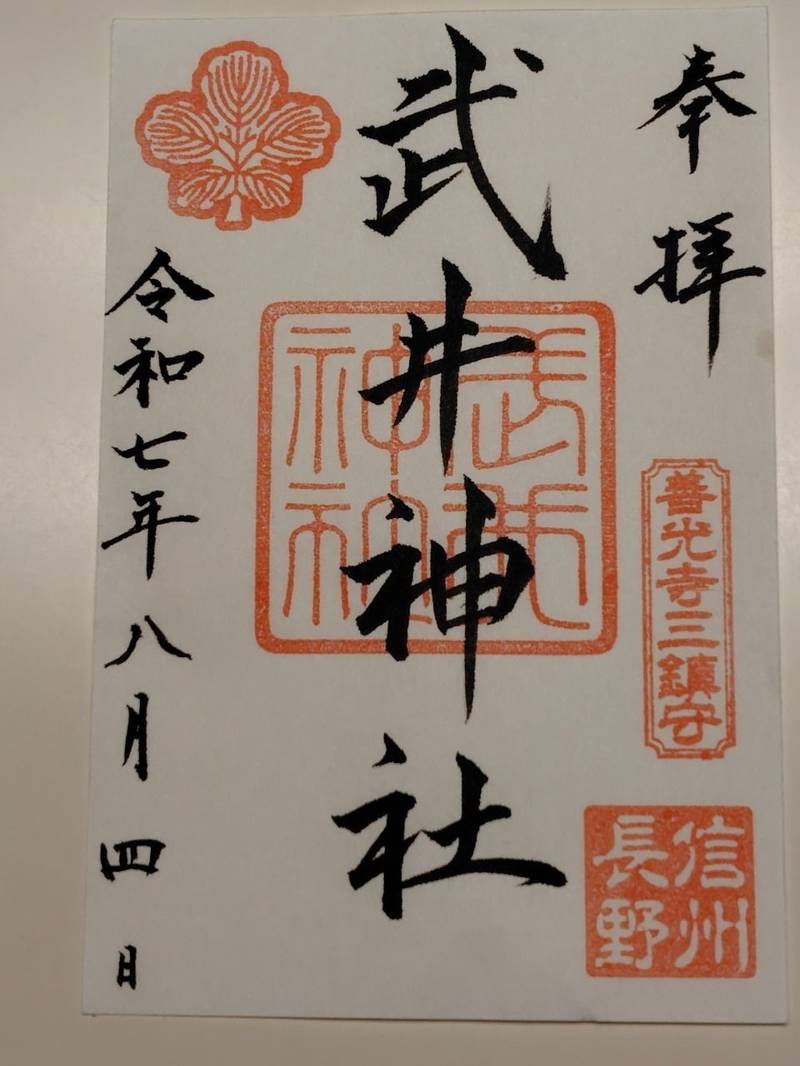 奉拝
善光寺三鎮守
信州
長野
武井神社
令和七年八月四日